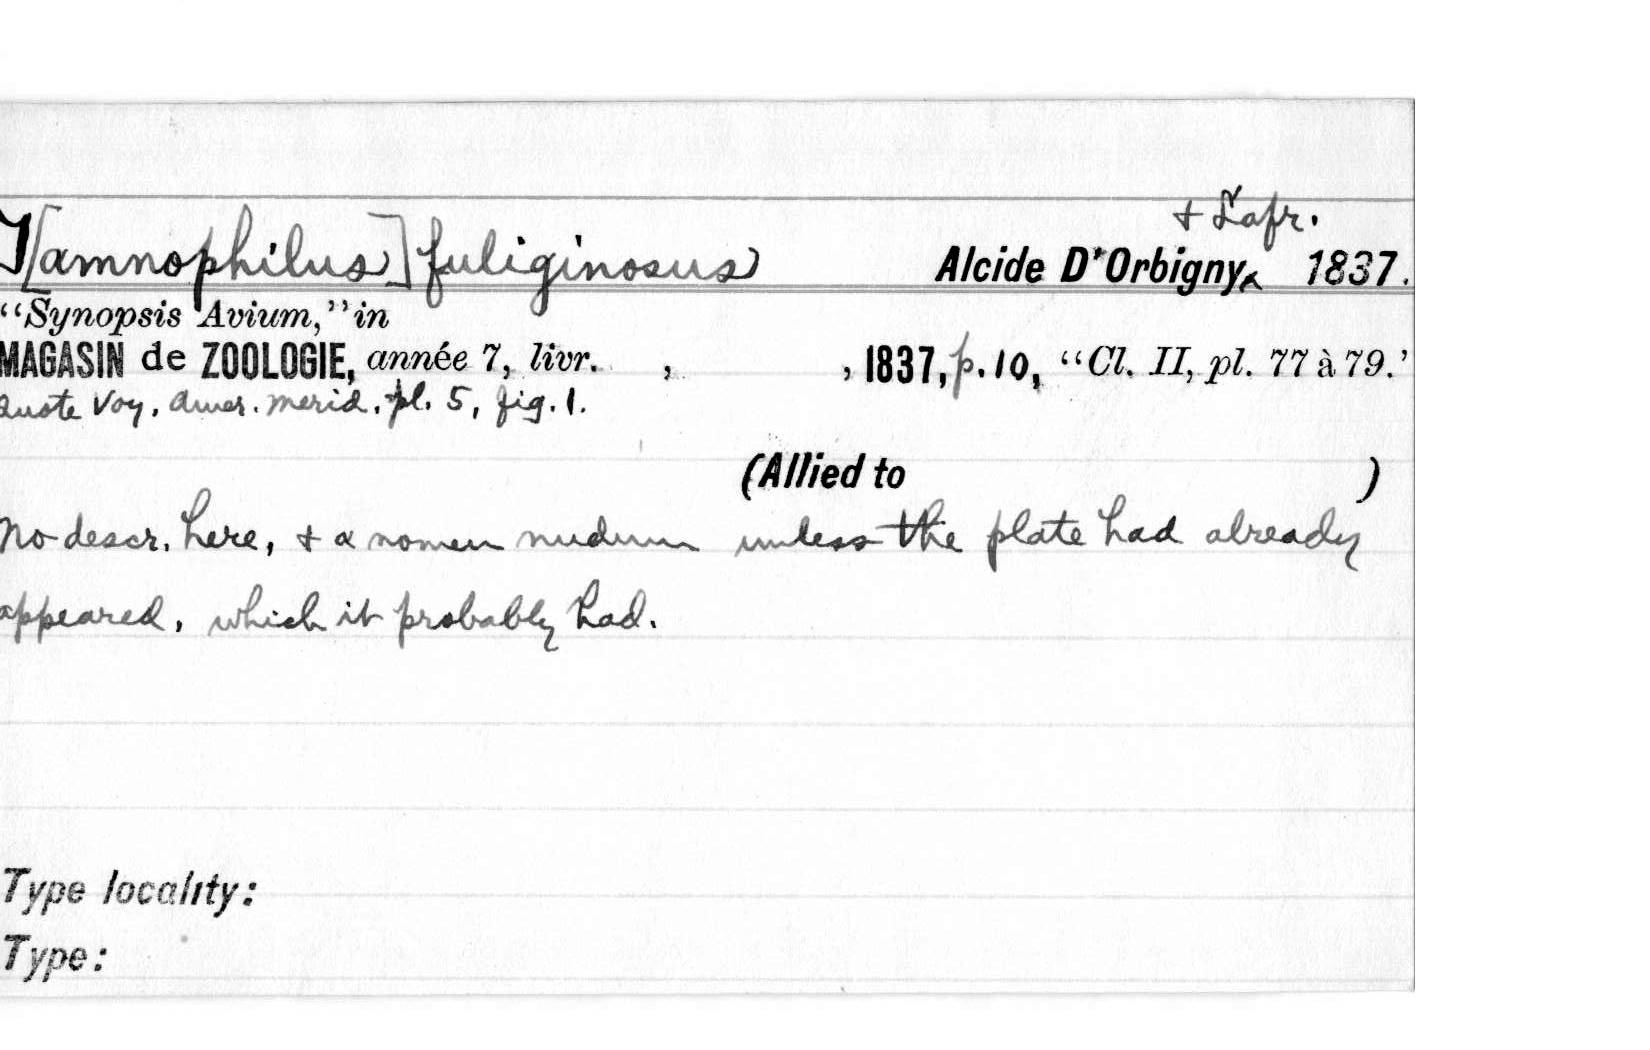 T[amnophilus] fuliginosus Alcide D'Orbigny‸ + Lafr. 1837.
“Synopsis Avium,” in
MAGASIN de ZOOLOGIE, année 7, livr. , , 1837, p. 10, “Cl. II, pl. 77 à 79.’
Quote Voy. Amer. Merid. pl. 5, fig. 1.
(Allied to )
No descr. here, + a nomen nudum unless the plate had already
appeared, which it probably had.
Type locality:
Type: